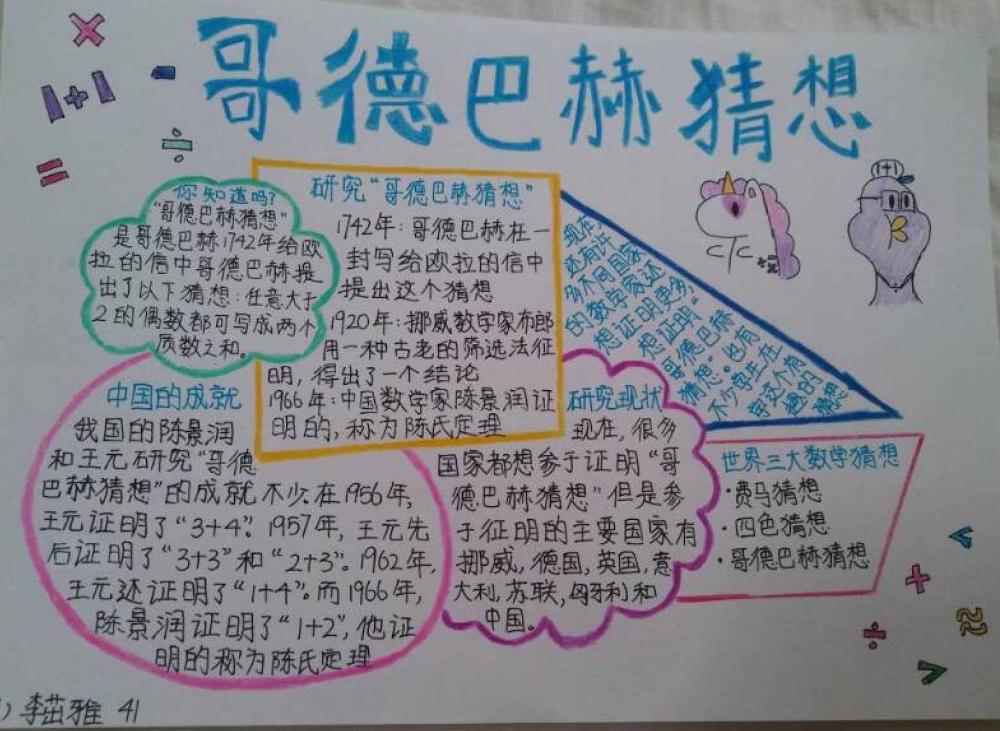 哥德巴赫猜想
1+1
你知道吗?
"哥德巴赫猜想"
是哥德巴赫1742年给欧
拉的信中哥德巴赫提
出了以下猜想:任意大于
2的偶数都可写成两个
质数之和。
研究"哥德巴赫猜想"
1742年:哥德巴赫在一
封写给欧拉的信中
提出这个猜想
1920年:挪威数学家布郎
用一种古老的筛选法征
明,得出了一个结论
1966年:中国数学家陈景润证
明的,称为陈氏定理
现在
还有许
多不同国家
的数学家还
想证明更多,
想证明"
哥德巴赫
猜想"。也有
不少学生在
学这个想
趣的
猜想
1+1
中国的成就
我国的陈景润
和王元研究"哥德
巴赫猜想"的成就不少.在1956年,
王元证明了"3+4".1957年,王元先
后证明了"3+3"和"2+3"。1962年,
王元还证明了"1+4"。而1966年,
陈景润证明了"1+2",他证
明的称为陈氏定理
研究现状
现在,很多
国家都想参于证明"哥
德巴赫猜想"但是参
于征明的主要国家有
挪威,德国,英国,意
大利,苏联,匈牙利和
中国。
世界三大数学猜想
·费马猜想
·四色猜想
·哥德巴赫猜想
) 李茁雅 41